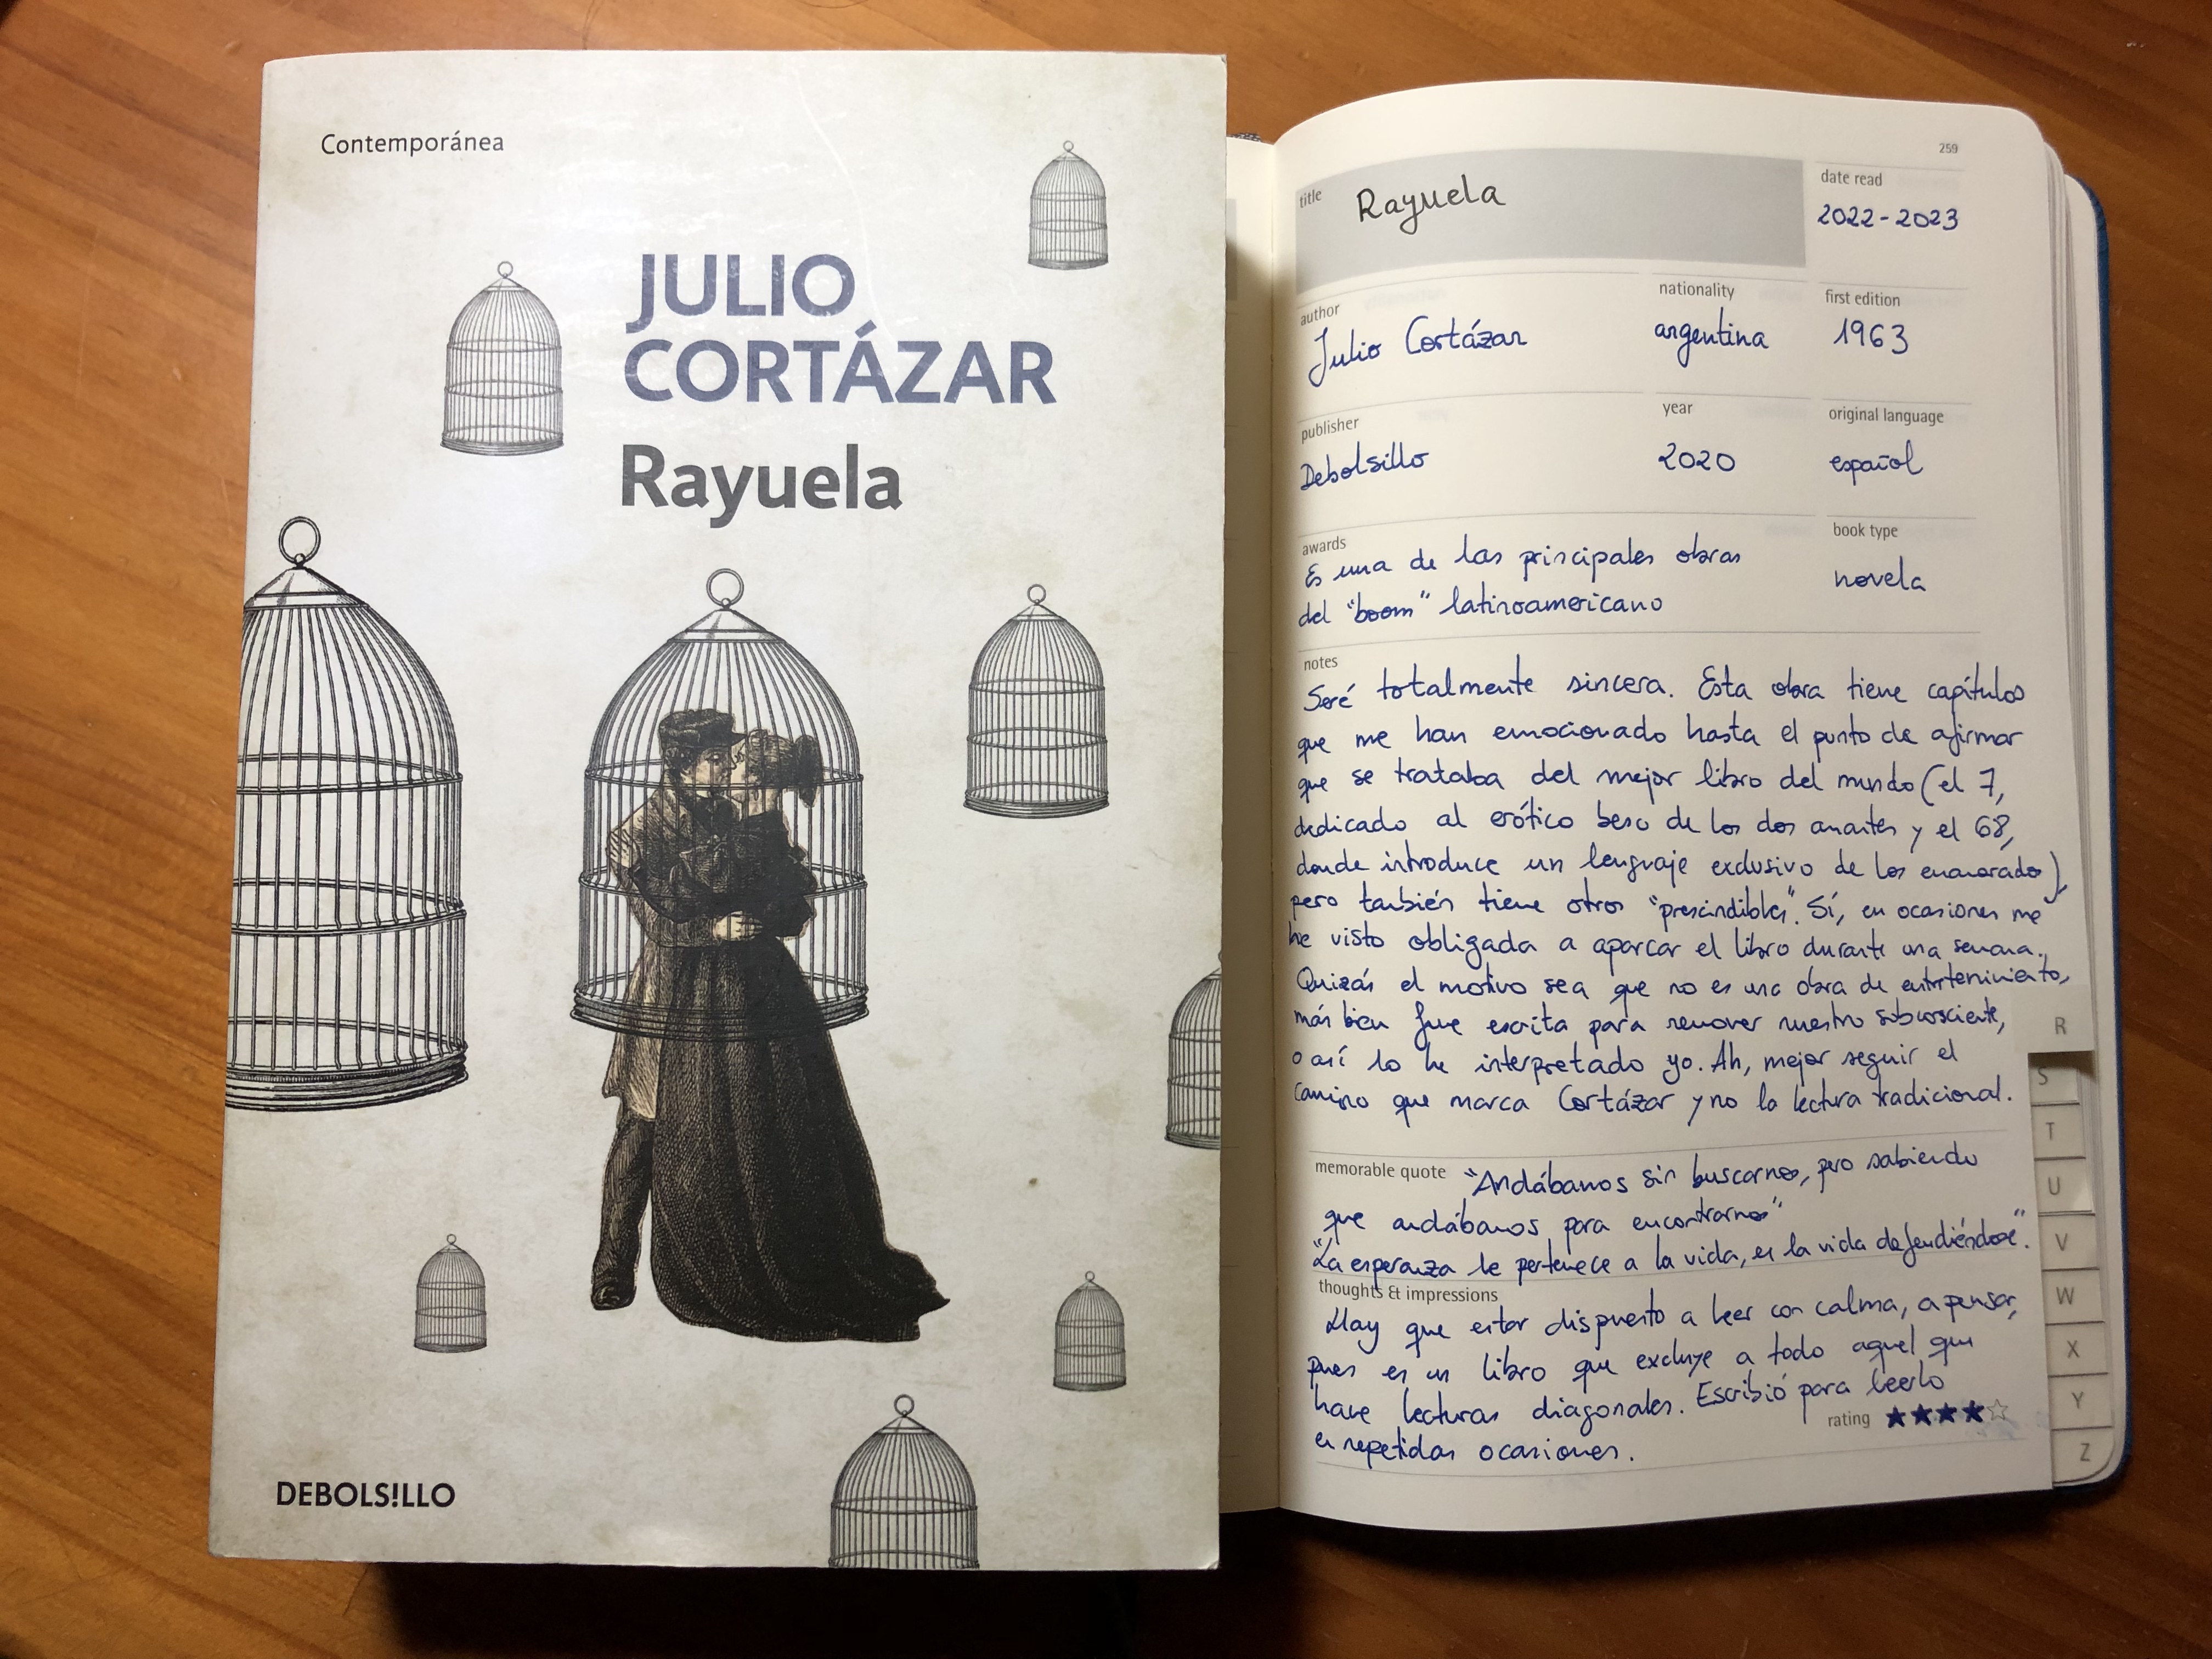 Contemporánea
JULIO
CORTÁZAR
Rayuela
DEBOLS!LLO
259
title Rayuela
date read
2022-2023
author
Julio Cortázar
nationality
argentina
first edition
1963
publisher
Debolsillo
year
2020
original language
español
awards
Es una de las principales obras
del "boom" latinoamericano
book type
novela
notes
Seré totalmente sincera. Esta obra tiene capítulos
que me han emocionado hasta el punto de afirmar
que se trataba del mejor libro del mundo (el 7,
dedicado al erótico beso de los dos amantes y el 68,
donde introduce un lenguaje exclusivo de los enamorados),
pero también tiene otros "prescindibles". Sí, en ocasiones me
he visto obligada a aparcar el libro durante una semana.
Quizás el motivo sea que no es una obra de entretenimiento,
más bien fue escrita para remover nuestro subconsciente,
o así lo he interpretado yo. Ah, mejor seguir el
camino que marca Cortázar y no la lectura tradicional.
memorable quote "Andábamos sin buscarnos, pero sabiendo
que andábamos para encontrarnos"
"La esperanza le pertenece a la vida, es la vida defendiéndose".
thoughts & impressions
Hay que estar dispuesto a leer con calma, a pensar,
pues es un libro que excluye a todo aquel que
hace lecturas diagonales. Escribió para leerlo
en repetidas ocasiones.
rating ★★★★☆
R
S
T
U
V
W
X
Y
Z